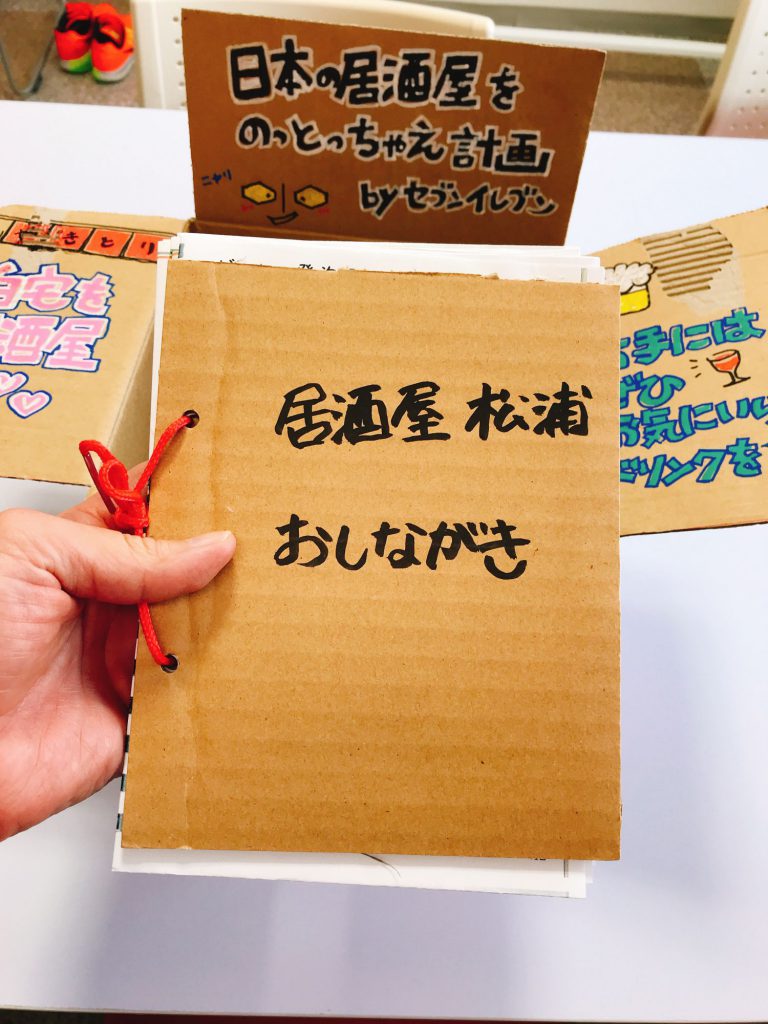 日本の居酒屋を
のっとっちゃえ計画
ニヤリ
byセブンイレブン
きとり
自宅を
酒屋
居酒屋 松浦
おしながき
手には
ぜひ
お気にいり
ドリンクを